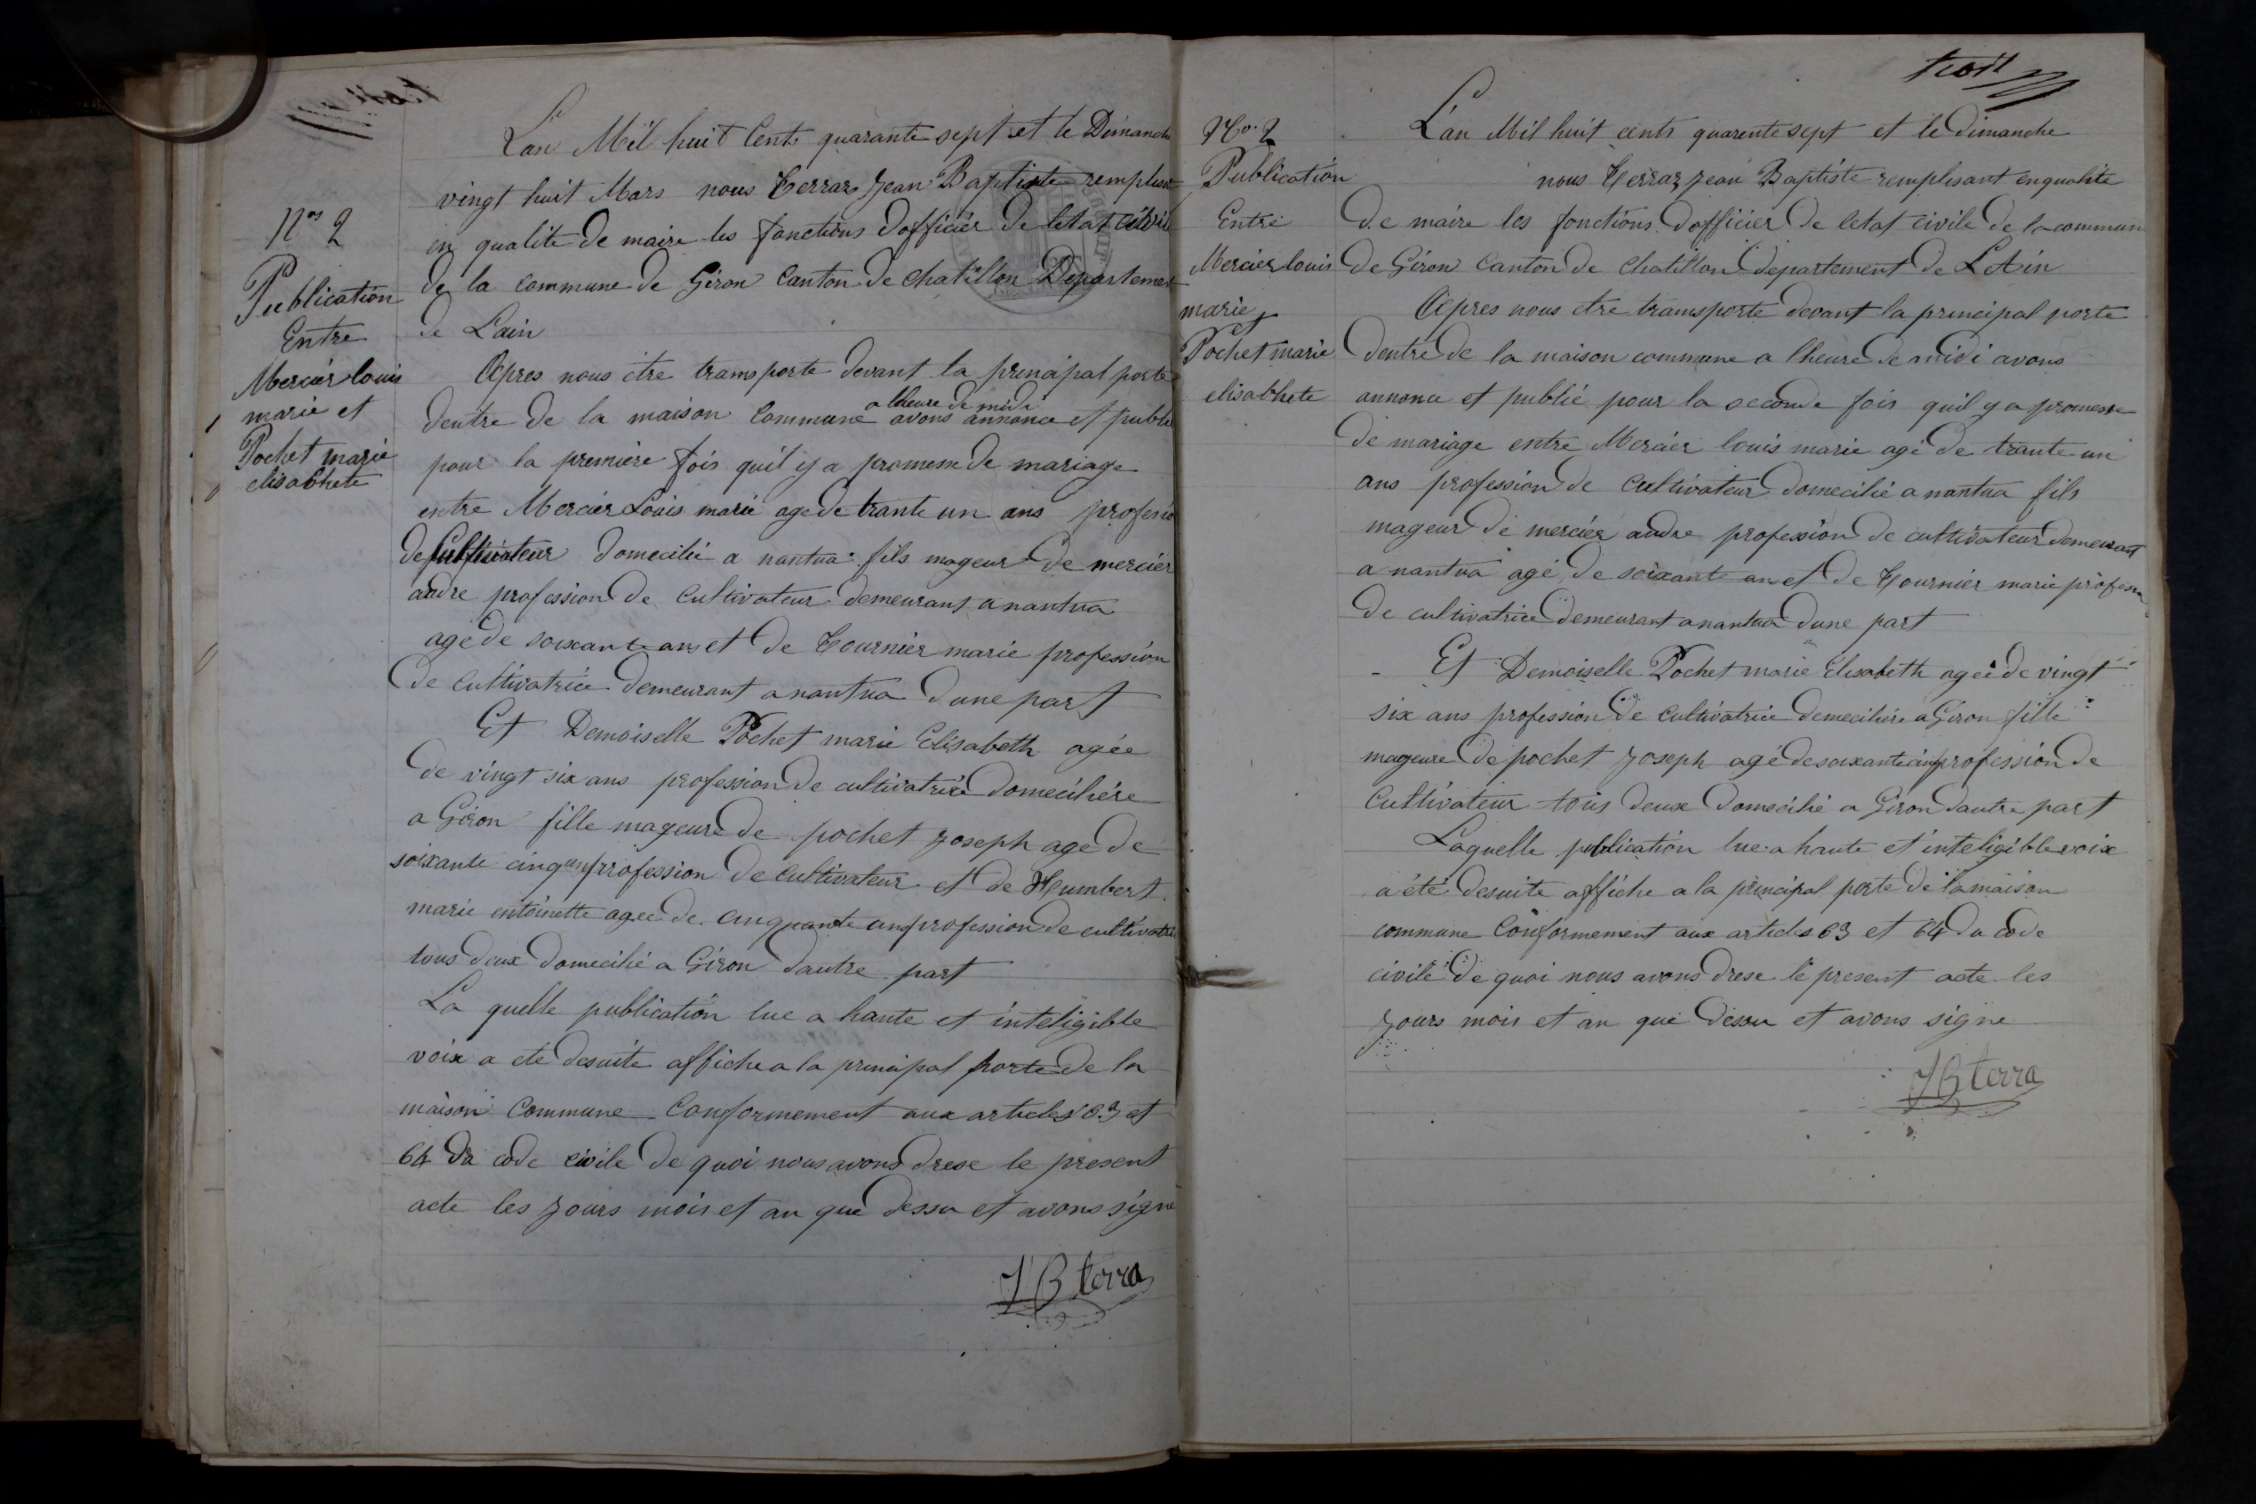 Nos 2
Publication
Entre
Mercier louis
marie et
Pochet marie
elisabhete
L'an Mil huit Cents quarante sept et le Dimanche
vingt huit Mars nous Terraz Jean Baptiste remplisant
en qualite de maire les fonctions dofficier de letat civile
de la commune de Giron Canton de chatillon Departement
de Lain
Apres nous être transporte devant la principal porte
dentre de la maison commune a lheure de midi avons annonce et publie
pour la premiere fois quil y a promesse de mariage
entre Mercier Louis marie age de trante un ans profession
de Cultivateur domecilie a nantua fils mageur de mercier
andre profession de Cultivateur demeurant a nantua
age de soixante an et de Tournier marie profession
de cultivatrice demeurant a nantua dune part
Et Demoiselle Pochet marie Elisabeth agée
de vingt six ans profession de cultivatrice domeciliére
a Giron fille mageure de pochet Joseph age de
soixante cinq an profession de cultivateur et de Humbert
marie entoinette agee de cinquante an profession de cultivatrice
tous deux domecilié a Giron dautre part
La quelle publication lue a haute et inteligible
voix a eté desuite affiche a la principal porte de la
maison Commune Conformement aux articles 63 et
64 du code civile de quoi nous avons drese le present
acte les jours mois et an que dessu et avons signe
JB terra
trois
No. 2
Publication
Entre
Mercier louis
marie
et
Pochet marie
elisabhete
L'an Mil huit cents quarente sept et le dimanche
nous Terraz Jean Baptiste remplisant enqualite
de maire les fonctions dofficier de letat civile de la commune
de Giron Canton de Chatillon departement de LAin
Apres nous etre transporte devant la principal porte
dentre de la maison commune a lheure de midi avons
annonce et publié pour la seconde fois quil y a promesse
de mariage entre Mercier louis marie agé de trante un
ans profession de Cultivateur domecilié a nantua fils
mageur de mercier andre profession de cultivateur demeurant
a nantua agé de soixante an et de Tournier marie profession
de cultivatrice demeurant a nantua dune part
Et Demoiselle Pochet marie Elisabeth agée de vingt
six ans profession de cultivatrice demeciliére a Giron fille
mageure de pochet Joseph agé de soixante cinq profession de
Cultivateur tous deux Domecilié a Giron dautre part
Laquelle publication lue a haute et inteligible voix
a été desuite affiche a la principal porte de la maison
commune Conformement aux articles 63 et 64 du code
civile de quoi nous avons drese le present acte les
jours mois et an que dessu et avons signe
JB terra